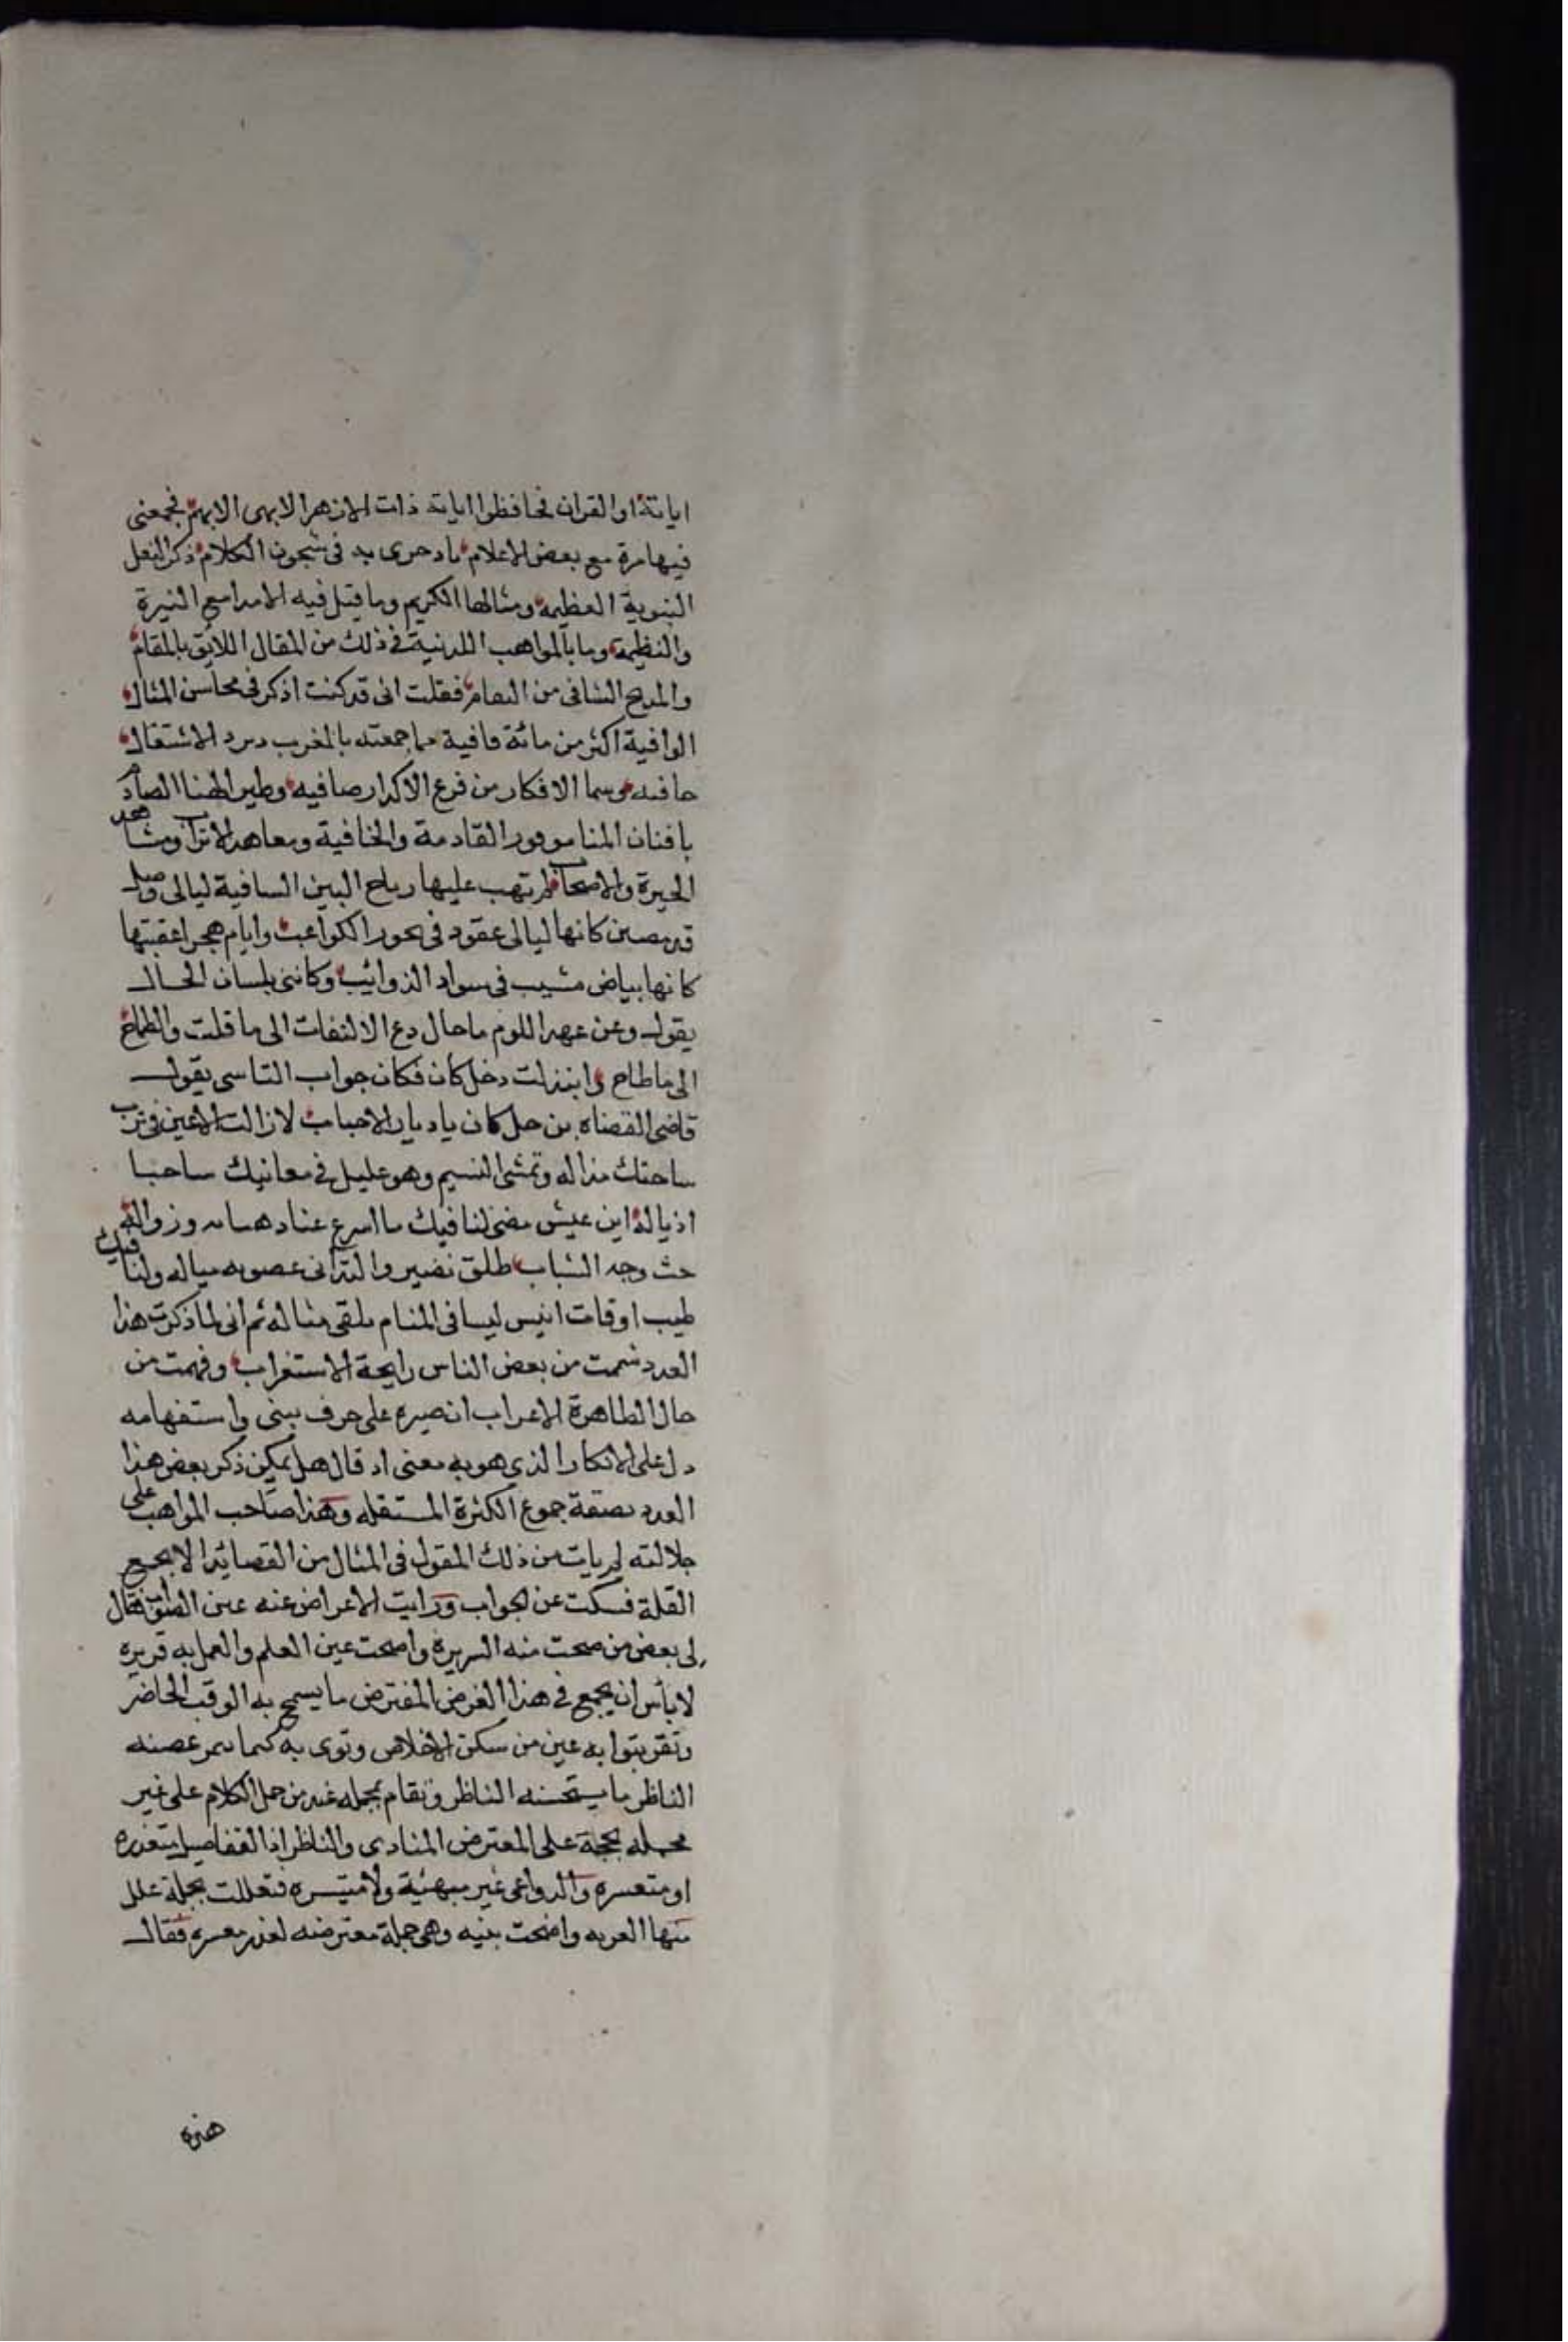 اياته او القران فحافظوا اياته ذات الازهر الابهى الابهر فجمعنى
فيها مرة مع بعض الاعلام ناد جرى به فى شجون الكلام ذكر النعل
النبوية العظيمة ومثالها الكريم وما قيل فيه الامداح النيرة
والنظيمة وما بالمواهب اللدنية فى ذلك من المقال اللائق بالمقام
والمديح الشافى من السقام فقلت انى قد كنت اذكر فى محاسن المثال
الوافية اكثر من مائة قافية مما جمعته بالمغرب وبرد الاشتغال
ضافيه وسما الافكار من قزع الاكدار صافيه وطير الهنا الصادح
بافنان المنا موفور القادمة والخافية ومعاهد الاتراب ومشاهد
الجيرة والاصحاب لم تهب عليها رياح البين السافية ليالى وصل
قد مضين كانها ليالى عقود فى نحور الكواعب وايام هجر اعقبتها
كانها بياض مشيب فى سواد الذوائب وكاننى بلسان الحال
يقول وعن عهد اللوم ما حال دع الالتفات الى ما قلت والطماح
الى ما طاح وابنذلت دخل كان فكان جواب التاسى يقول
قاضى القضاه بن خلكان ياديار الاحباب لازالت الاعين فى ترب
ساحتك مذاله وتمشى النسيم وهو عليل فى مغانيك ساحبا
اذياله اين عيش مضى لنا فيك ما اسرع عنا ذهابه وزواله
حيث وجه الشباب طلق نضير والتدانى غصونه مياله ولنا فيك
طيب اوقات انيس ليتنا فى المنام نلقى مثاله ثم انى لما ذكرت هذا
العدد شممت من بعض الناس رايحة الاستغراب وفهمت من
حال الظاهرة الاعراب ان ضميره على حرف يبنى واستفهامه
دل على الانكار الذى هو به معنى اذ قال هل يمكن ذكر بعض هذا
العدد بصيغة جموع الكثرة المستقله وهذا صاحب المواهب على
جلالته لم يات من ذلك المقول فى المثال من القصائد الا بجمع
القلة فسكت عن الجواب ورايت الاعراض عنه عين الصواب فقال
لى بعض من صحت منه السريرة واضحت عين العلم والعمل به قريره
لا باس ان يجمع فى هذا الغرض المفترض ما يسمح به الوقت الحاضر
وتقر بثوابه عين من سكن الاخلاص
الناظر ما يستحسنه الناظر وتقام بجمله عند من حمل الكلام على غير
محمله بحجة على المعترض المنادى والناظر اذ التفاصيل متعذره
او متعسره والدواعى غير متهيئة ولا متيسره فتعللت بجملة علل
منها الغربه واضحت بنيه وهى جملة معترضه لعذر معسره فقال
هذه